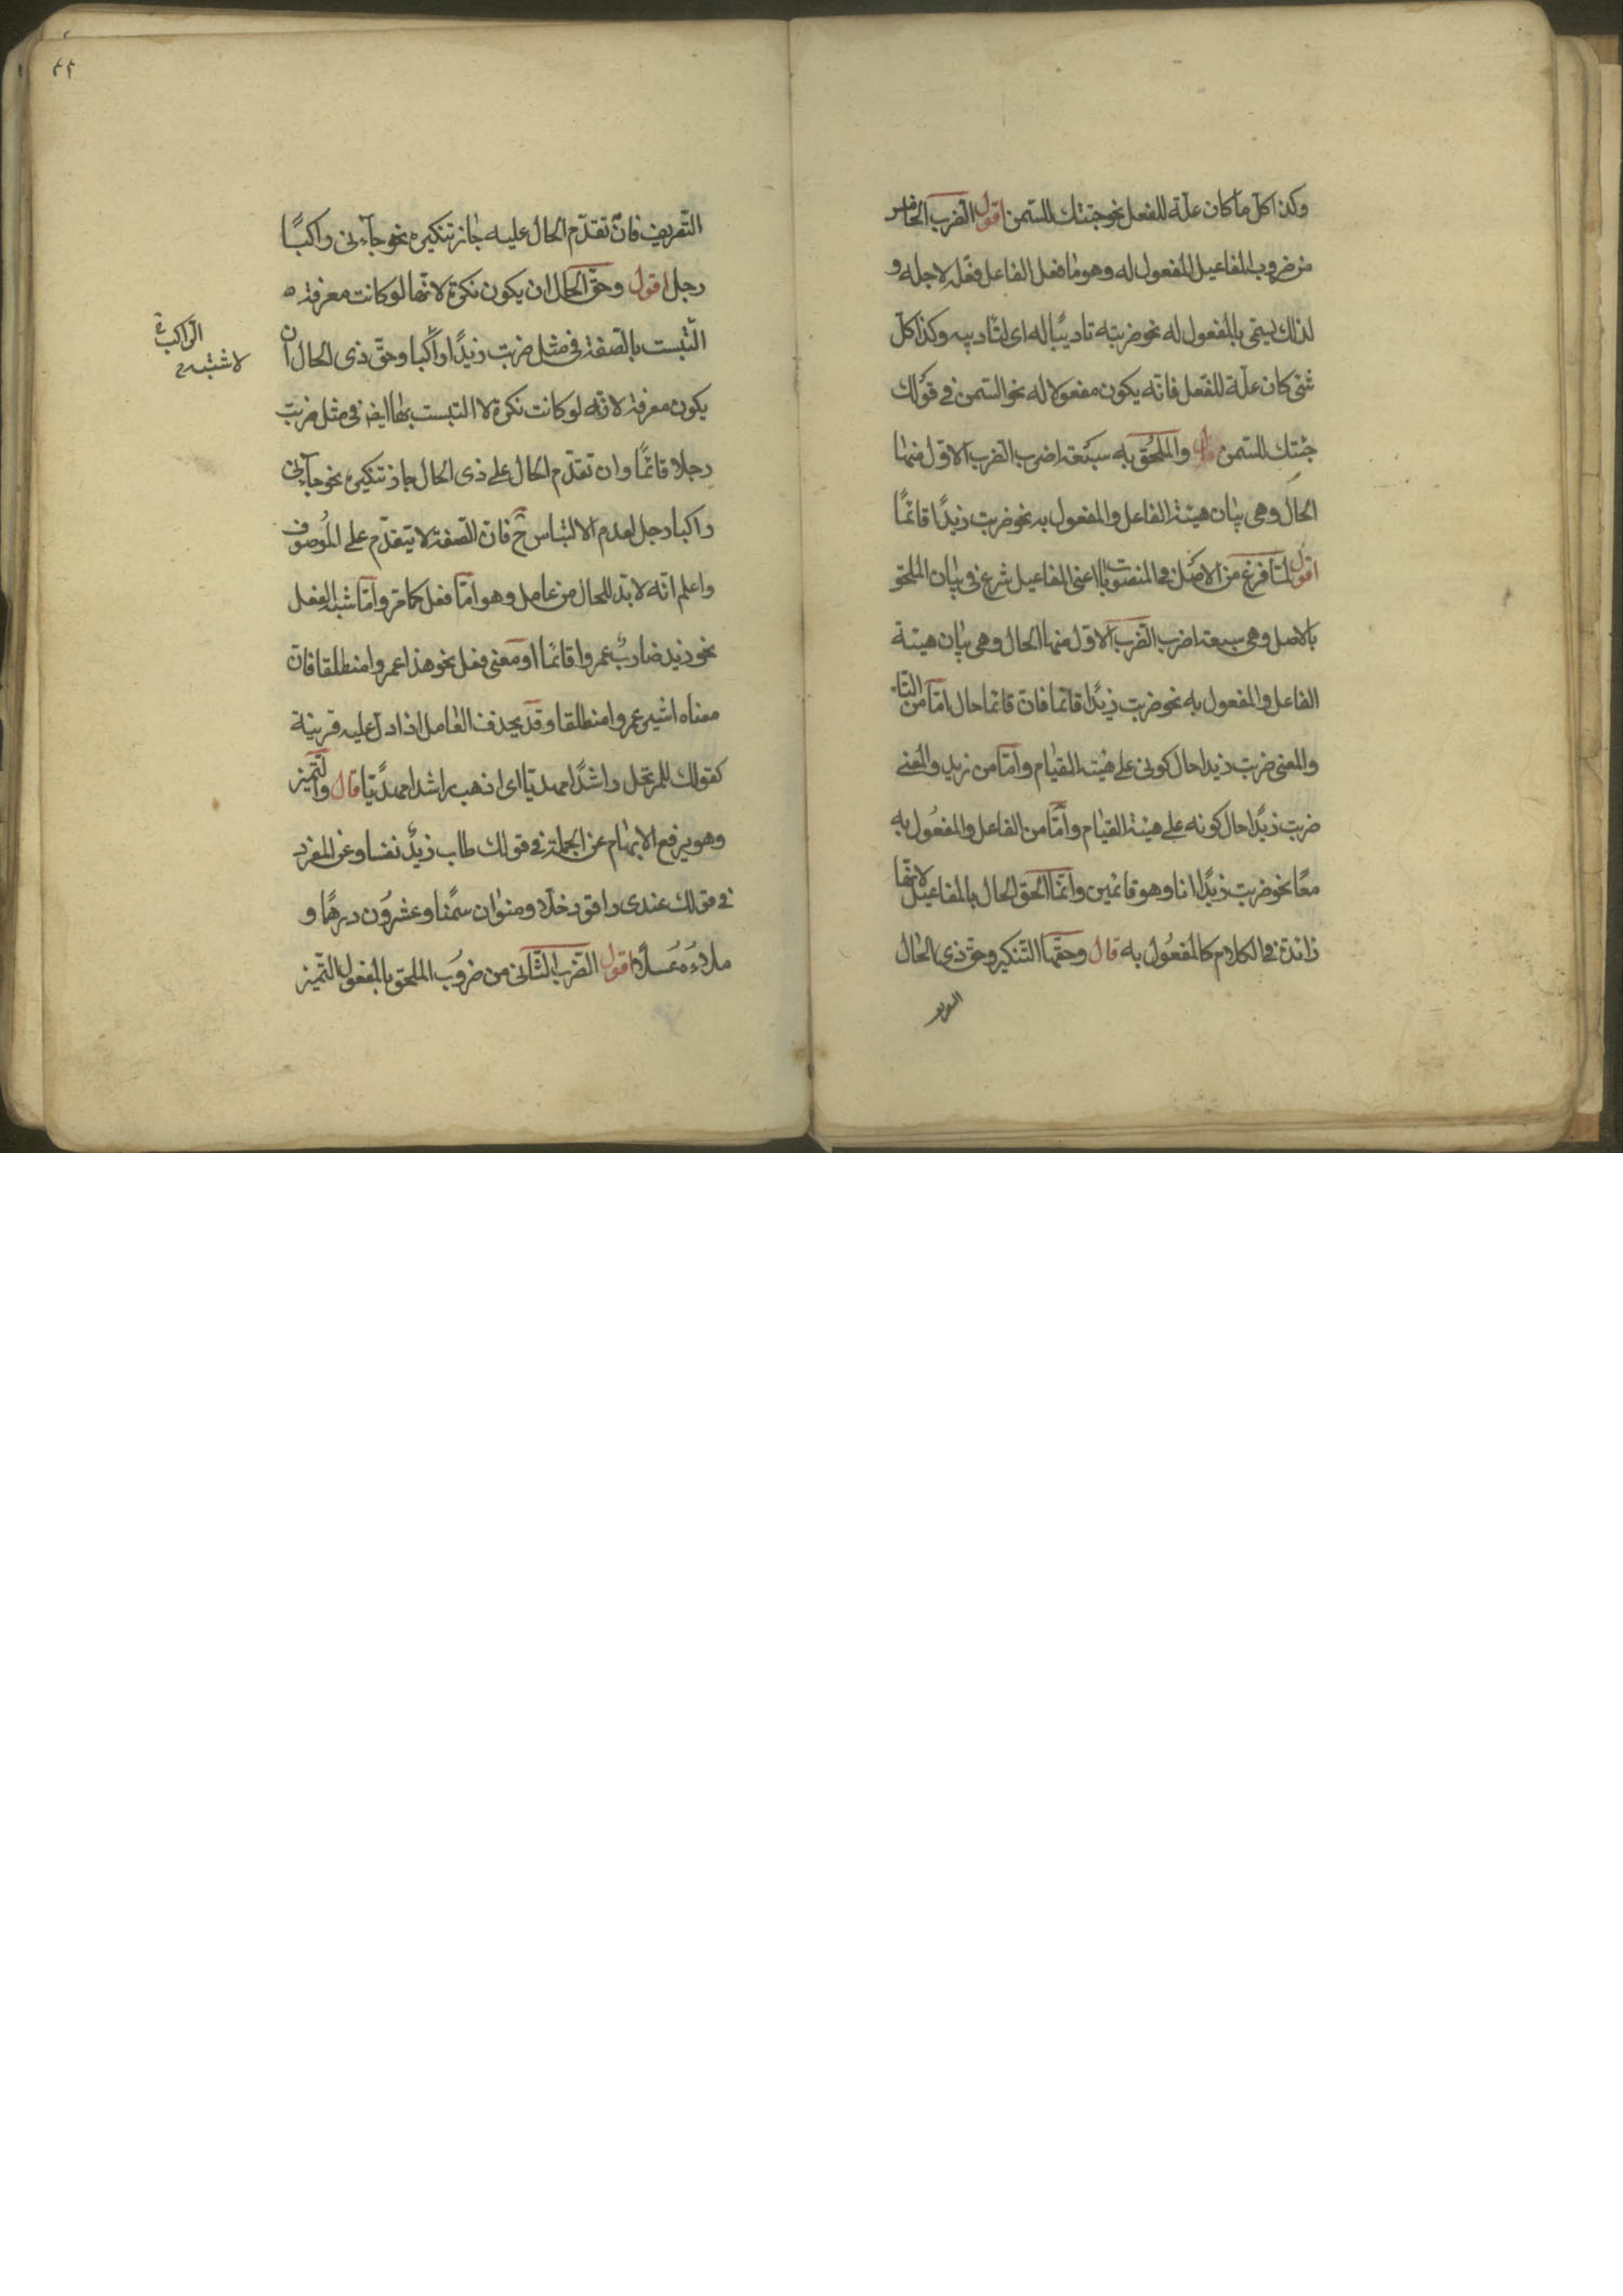 وكذا كلّ ما كان علّة للفعل نحو جئتك للسّمن اقول الضرب الخامس
من ضروب المفاعيل المفعول له وهو ما فعل الفاعل فعله لاجله و
لذلك يسمّى بالمفعول له نحو ضربته تاديبًا له اى لتاديبه وكذا كلّ
شئ كان علّة للفعل فانّه يكون مفعولا له نحو السّمن في قولك
جئتك للسّمن قال والملحق به سبعة اضرب الضرب الاوّل منها
الحال وهى بيان هيئة الفاعل والمفعول به نحو ضربت زيدًا قائمًا
اقول لمّا فرغ من الاصل في المنصوبات اعنى المفاعيل شرع في بيان الملحق
بالاصل وهى سبعة اضرب الضرب الاوّل منها الحال وهى بيان هيئة
الفاعل والمفعول به نحو ضربت زيدًا قائما فانّ قائما حال امّا من التاء
والمعنى ضربت زيدا حال كونى على هيئة القيام وامّا من زيد والمعنى
ضربت زيدًا حال كونه على هيئة القيام وامّا من الفاعل والمفعول به
معًا نحو ضربت زيدًا انا وهو قائمين وانّما الحق الحال بالمفاعيل لانّها
زائدة في الكلام كالمفعول به قال وحقّها التّنكير وحقّ ذى الحال
التعريف
٤٤
التّعريف فانّ تقدّم الحال عليه جاز تنكيره نحو جآءنى راكبًا
رجل اقول وحقّ الحال ان يكون نكرة لانّها لو كانت معرفة
التبست بالصّفة في مثل ضربت زيدًا راكبا وحقّ ذى الحال ان
الرّاكب
لاشتبه
يكون معرفة لانّه لو كانت نكرة لا التبست بها ايضا في مثل ضربت
رجلا قائمًا وان تقدّم الحال على ذى الحال جاز تنكيره نحو جآءنى
راكبا رجل لعدم الالتباس ح فانّ الصّفة لا يتقدّم على الموصوف
واعلم انّه لا بدّ للحال من عامل وهو امّا فعل كما مرّ وامّا شبه الفعل
نحو زيد ضاربٌ عمروا قائما او معنى فعل نحو هذا عمروا منطلقا فانّ
معناه اشير عمروا منطلقا وقد يحذف العامل اذا دلّ عليه قرينة
كقولك للمرتحل راشدًا مهديّا اى اذهب راشدا مهديّا قال والتّميز
وهو يرفع الابهام عن الجملة في قولك طاب زيدٌ نفسا وعن المفرد
في قولك عندى راقود خلّا ومنوان سمنًا وعشرون درهمًا و
ملاءه عسلًا اقول الضرب الثّانى من ضروب الملحق بالمفعول التّميز